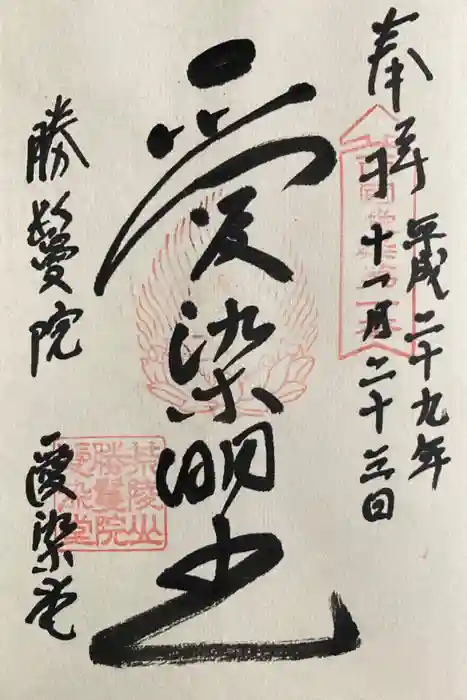 奉拝
平成二十九年
十一月二十三日
愛染明王
勝鬘院
愛染堂
荒陵山
勝鬘院
愛染堂